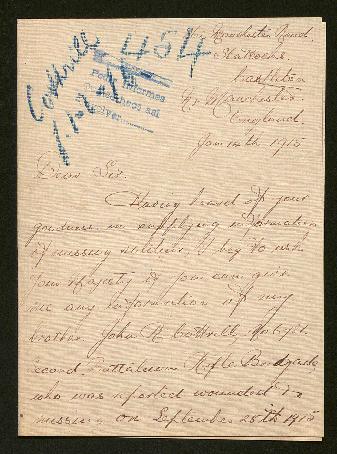 454
Cottrill
Manchester Road,
Castleton
Nr Manchester
England.
Jan 14th 1915
Dear Sir.
Having heard of your
goodness in supplying information
of missing soldiers, I beg to ask
your Majesty if you can give
me any information of my
brother John H Cottrill,
Second Battalion Rifle Brigade
who was reported wounded &
missing on September 25th 1915